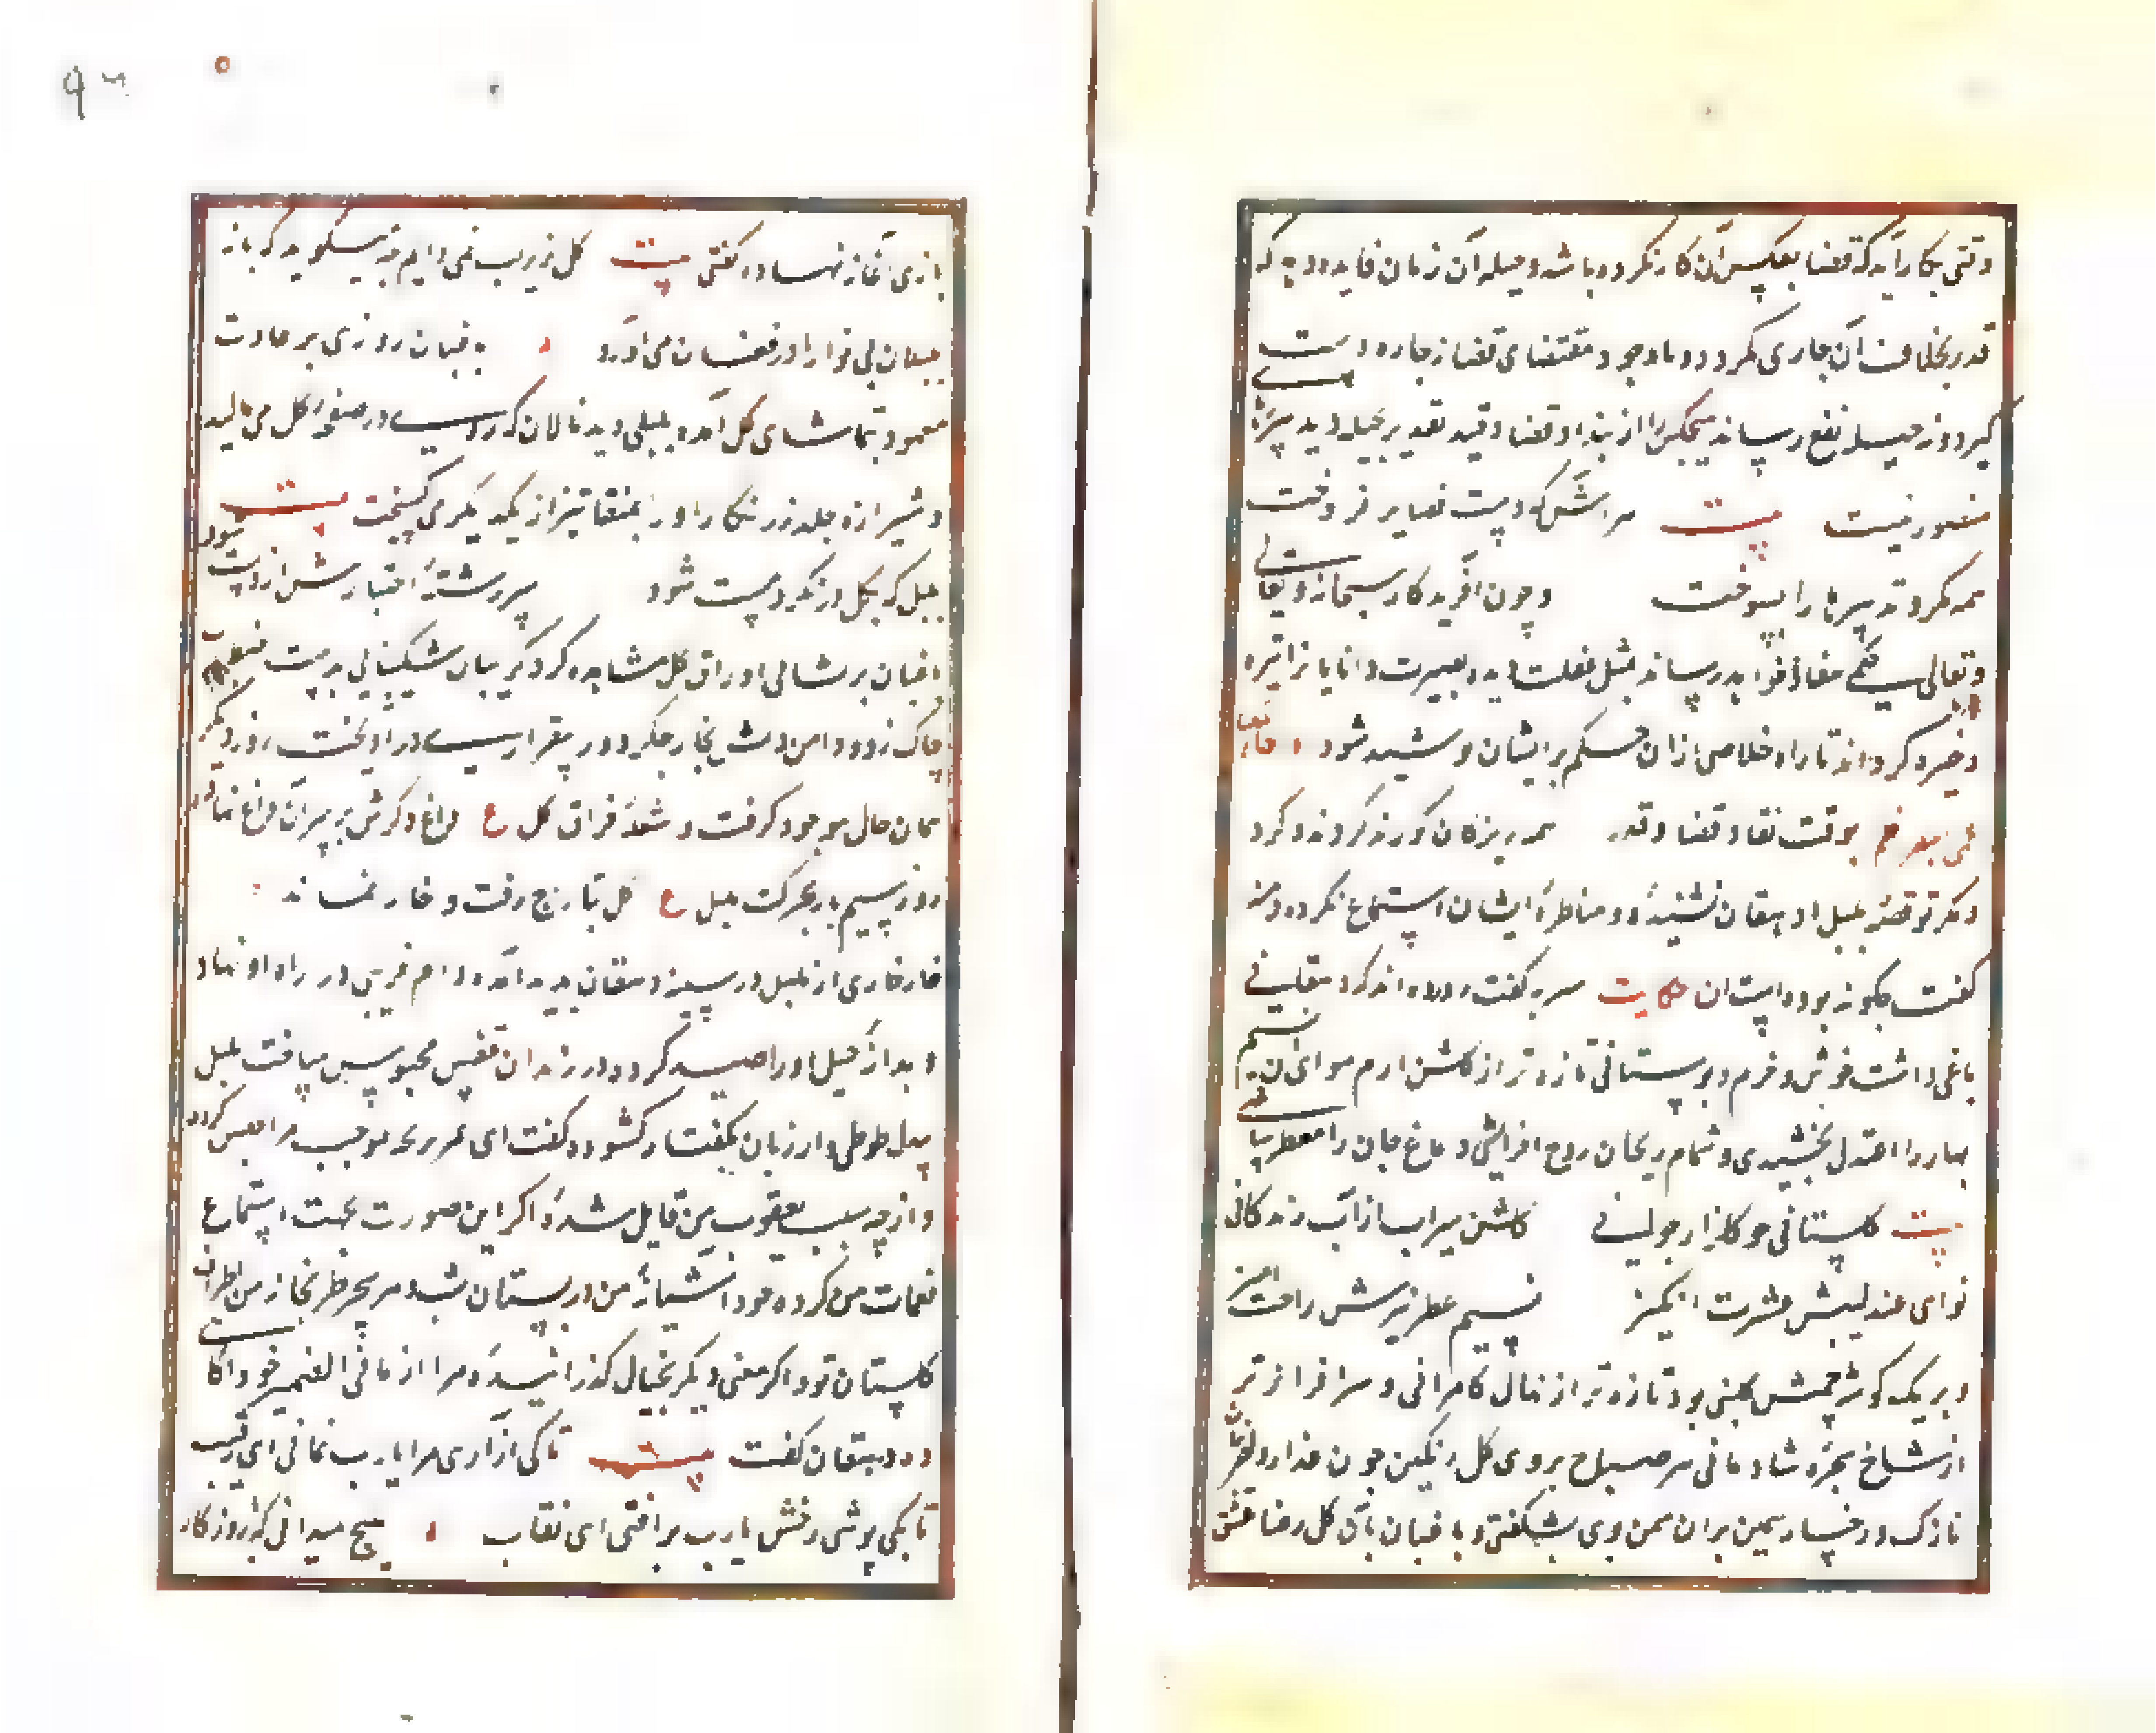 وقتی بکار آید که قضا بعکس آن کار نکرده باشد و حیله آن زمان فایده دهد که
قدر بخلاف آن جاری نکردد و با وجود مقتضای قضا نه چاره دست
کیرد و نه حیله نفع رساند هیچکس را از بند قضا و قید تقدیر بحیله و تدبیر
متصور نیست بیت هر آتش که دست قضا بر فروخت
همه فکر و تدبیرها را بسوخت و چون آفریدکار سبحانه و تعالی
و تعالی حکمی بنفاذ خواهد رساند بمیل غفلت دیده بصیرت دانایان را تیره
و خیره کرداند تا راه خلاصی از آن حکم بر ایشان پوشیده شود
عمی البصر بوقت نفاذ قضا و قدر همه زیرکان کور کردند و کر
و مکر تو قصه بلبل و دهقان نشنیدهٔ و مناظرهٔ ایشان استماع نکرده دمنه
کفت چکونه بود داستان حکایت شنزبه کفت آورده اند که دهقانی
باغی داشت خوش و خرم و بوستانی تازه تر از کلشن ارم هوای آن نسیم
بهار را اعتدال بخشیدی و شمامه ریحان روح افزایش دماغ جان را معطر ساختی
بیت کلستانی چو کلزار جوانی کلش سیراب از آب زندکانی
نوای عندلیبش عشرت انکیز نسیم عطر بیزش راحت آمیز
و بر یک کوشه چمنش کلبنی بود تازه تر از نهال کامرانی و سرافراز تر
از شاخ شجره شادمانی هر صباح بر وی کل رنکین چون عذار دلفریبان
نازک و رخسار سیمین بران سمن بوی بشکفتی و باغبان با آن کل رعنا عشق
بازی آغاز نهاده کفتی بیت کل بزیر لب نمی دانم چه میکوید که باز
بلبلان بی نوا را در فغان می آورد باغبان روزی بر عادت
معهود بتماشای کل آمد بلبلی دید نالان که روی در صفحه کل می مالید
و شیرازه جلد زرنکار او را بمنقار تیز از یکدیکر می کسیخت بیت
بلبل که بکل در نکرد مست شود سر رشتهٔ اختیارش از دست شود
باغبان پریشانی اوراق کل مشاهده کرد کریبان شکیبایی بدست اضطراب
چاک زد و دامن دلش بخار جکر دوز بیقراری در آویخت روز دیکر
همان حال موجود کرفت و شعلهٔ فراق کل ع داغ دکرش بر سر آن داغ نهاد
روز سیم باز بحرکت بلبل ع کل بتاراج رفت و خار بماند
خارخاری از بلبل در سینه دهقان پدید آمد و دام فریبی در راه او نهاد
و بدانهٔ حیل او را صید کرد و در زندان قفس محبوس ساخت بلبل
بیدل طوطی وار زبان بکفتار کشود و کفت ای عزیز بچه موجب مرا حبس کردی
و از چه سبب بعقوبت من مایل شدهٔ اکر این صورت بجهت استماع
نغمات من کرده خود آشیانهٔ من در بستان تست و دم سحر طربخانهٔ من اطراف
کلستان تو و اکر معنی دیکر بخیال کذرانیدهٔ مرا از ما فی الضمیر خود آکاه
ده دهقان کفت بیت تا کی آزاری مرا یا رب نمانی ای رقیب
تا بکی پوشی رخش یا رب بر افتی ای نقاب هیچ میدانی که روزکار